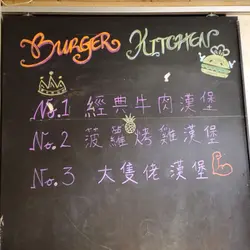 BURGER KITCHEN
No.1 經典牛肉漢堡
No.2 菠蘿烤雞漢堡
No.3 大隻佬漢堡